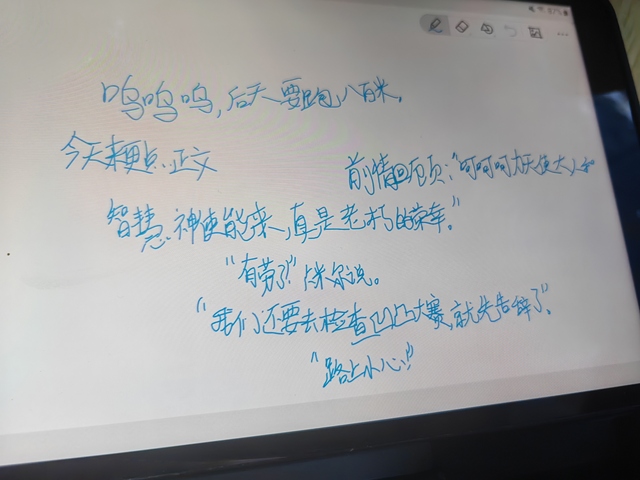 呜呜呜,后天要跑八百米,
今天来更点正文
前情回顾:"呵呵呵力天使大人和
智慧神使能来,真是老朽的荣幸。"
"有劳了!"卡米尔说。
"我们还要去检查凹凸大赛,就先告辞了。"
"路上小心!"